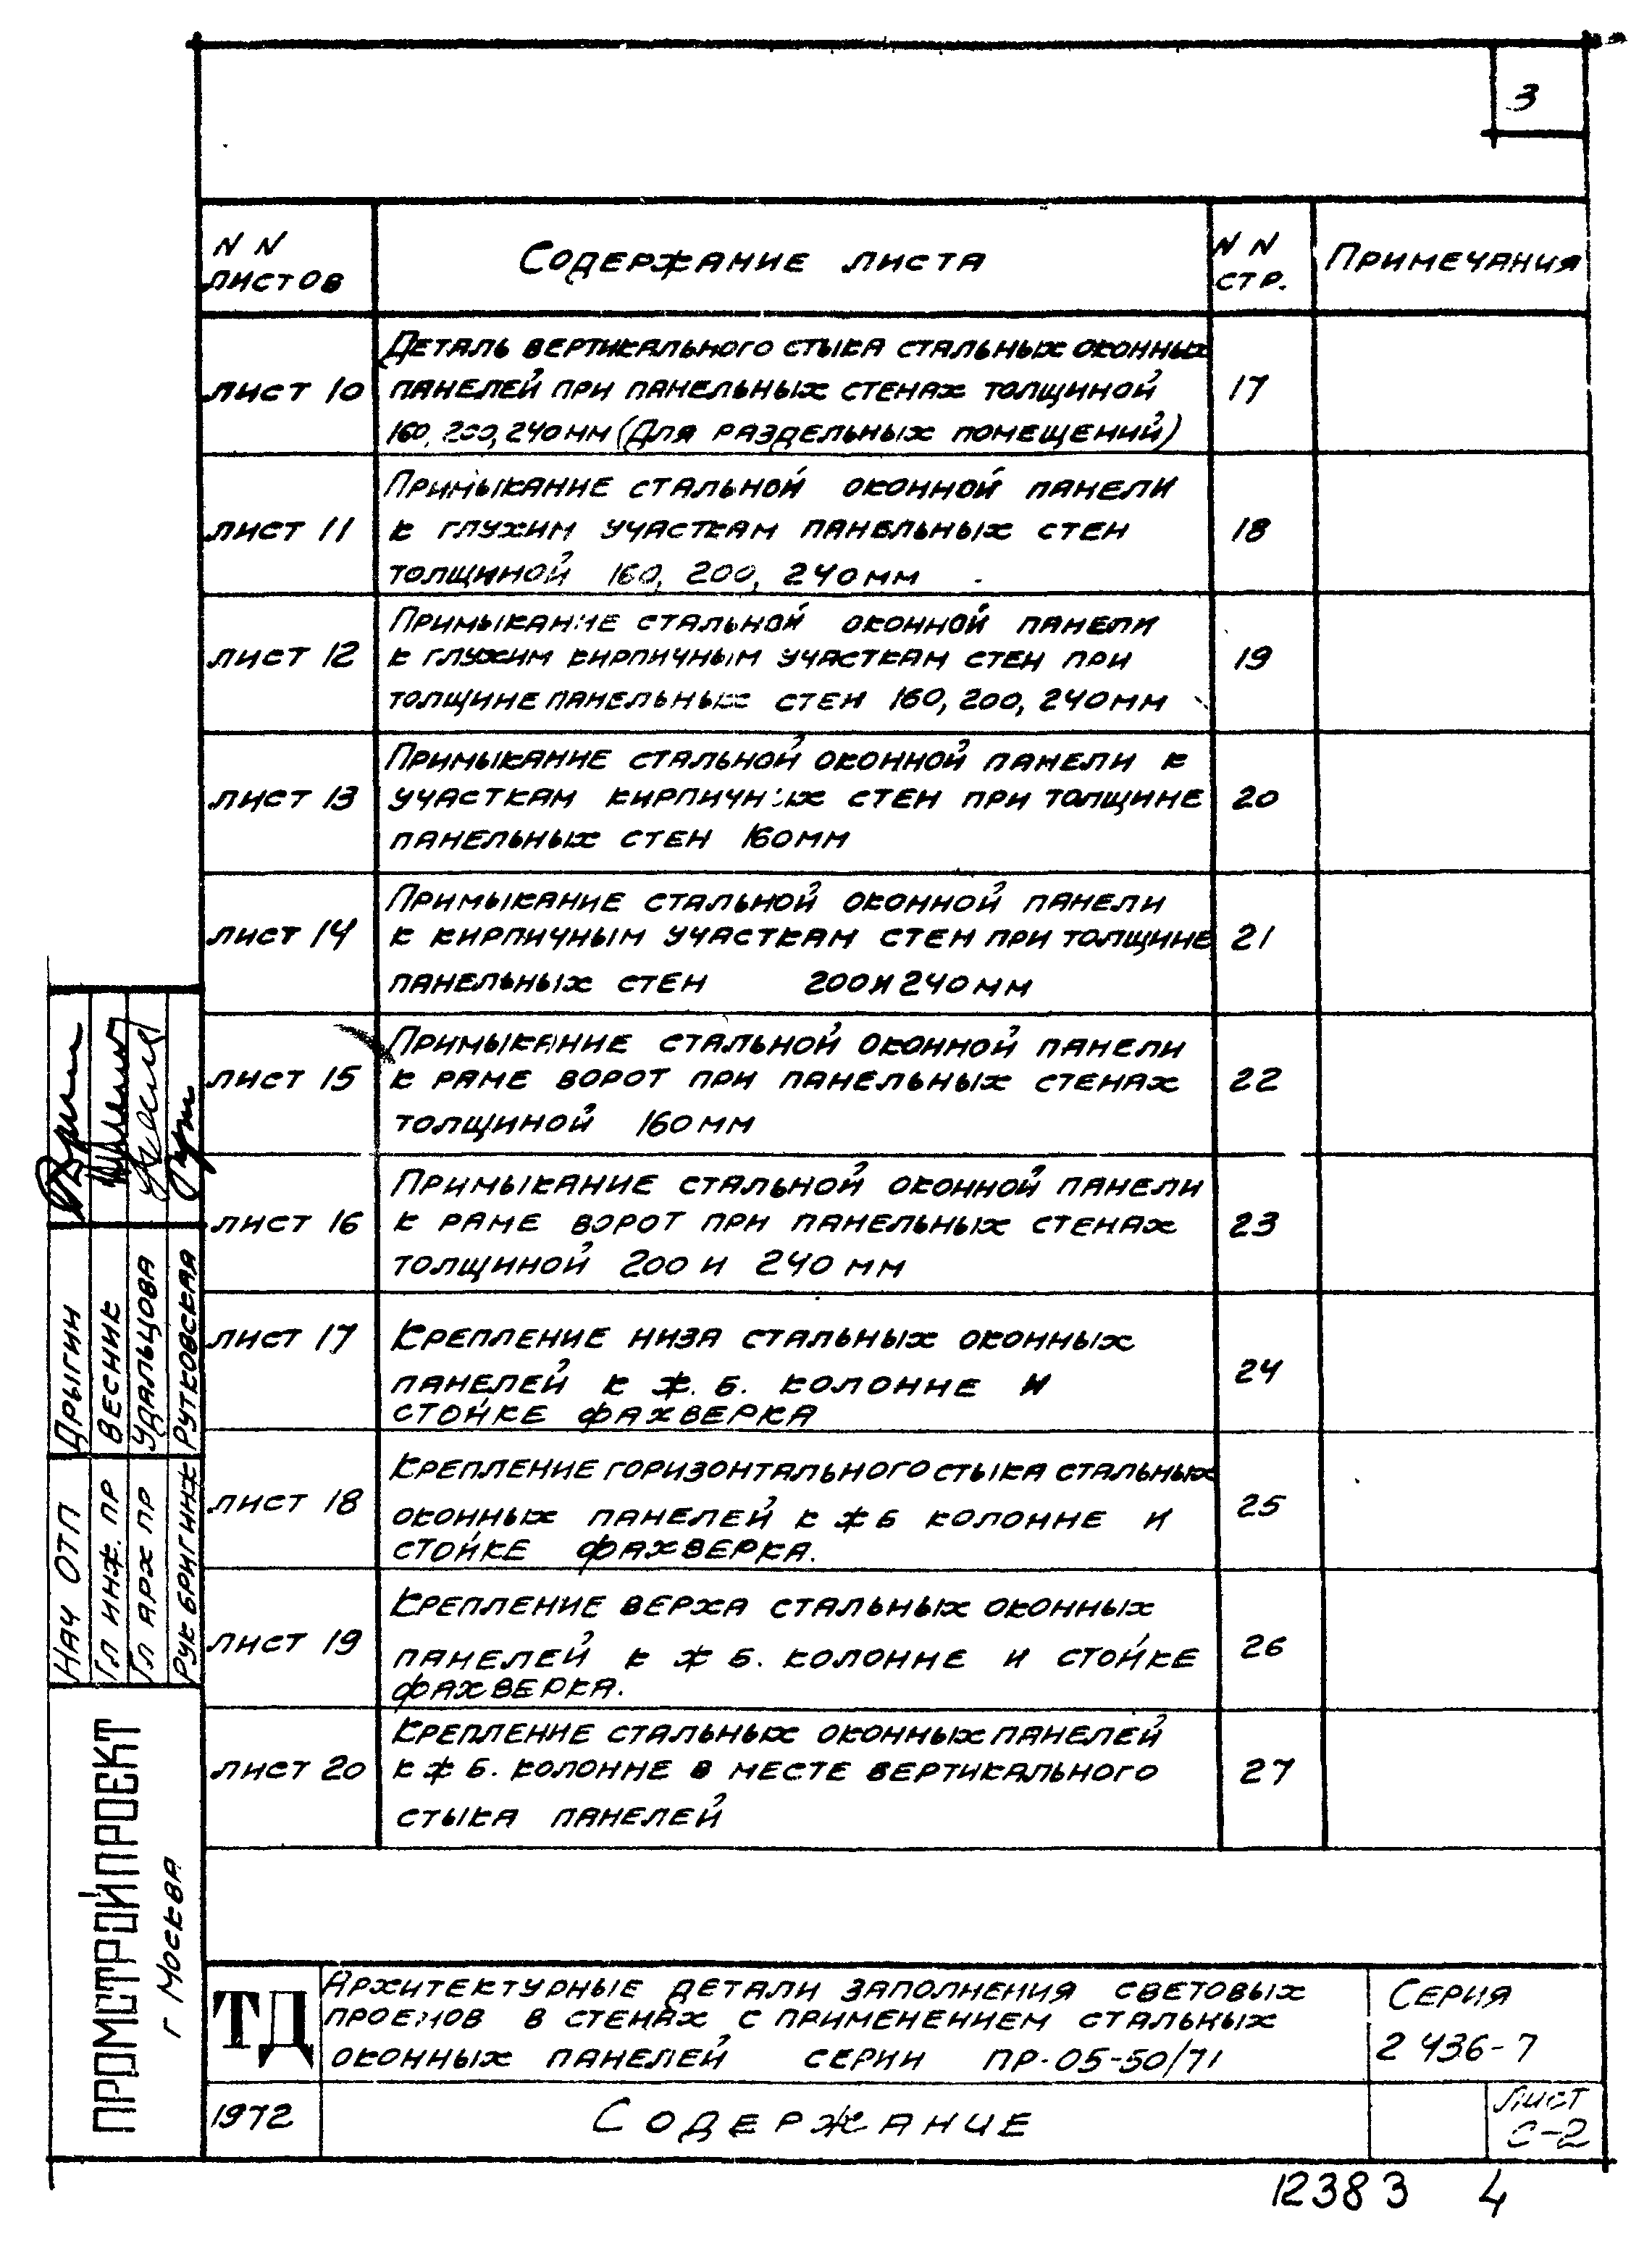 3
N N
листов
Содержание листа
N N
стр.
Примечания
лист 10
Деталь вертикального стыка стальных оконных
панелей при панельных стенах толщиной
160, 200, 240мм (Для раздельных помещений)
17
лист 11
Примыкание стальной оконной панели
к глухим участкам панельных стен
толщиной 160, 200, 240мм
18
лист 12
Примыкание стальной оконной панели
к глухим кирпичным участкам стен при
толщине панельных стен 160, 200, 240мм
19
лист 13
Примыкание стальной оконной панели к
участкам кирпичных стен при толщине
панельных стен 160мм
20
лист 14
Примыкание стальной оконной панели
к кирпичным участкам стен при толщине
панельных стен 200 и 240мм
21
лист 15
Примыкание стальной оконной панели
к раме ворот при панельных стенах
толщиной 160мм
22
лист 16
Примыкание стальной оконной панели
к раме ворот при панельных стенах
толщиной 200 и 240 мм
23
лист 17
Крепление низа стальных оконных
панелей к ж. б. колонне и
стойке фахверка
24
лист 18
Крепление горизонтального стыка стальных
оконных панелей к ж б колонне и
стойке фахверка.
25
лист 19
Крепление верха стальных оконных
панелей к ж б. колонне и стойке
фахверка.
26
лист 20
Крепление стальных оконных панелей
к ж б. колонне в месте вертикального
стыка панелей
27
Нач ОТП Дрыгин
Гл инж. пр Весник
Гл арх пр Удальцова
Рук бриг инж Рутковская
ПРОМСТРОЙПРОЕКТ
г Москва
ТД
Архитектурные детали заполнения световых
проемов в стенах с применением стальных
оконных панелей серии ПР-05-50/71
Серия
2 436-7
1972
Содержание
Лист
С-2
12383 4